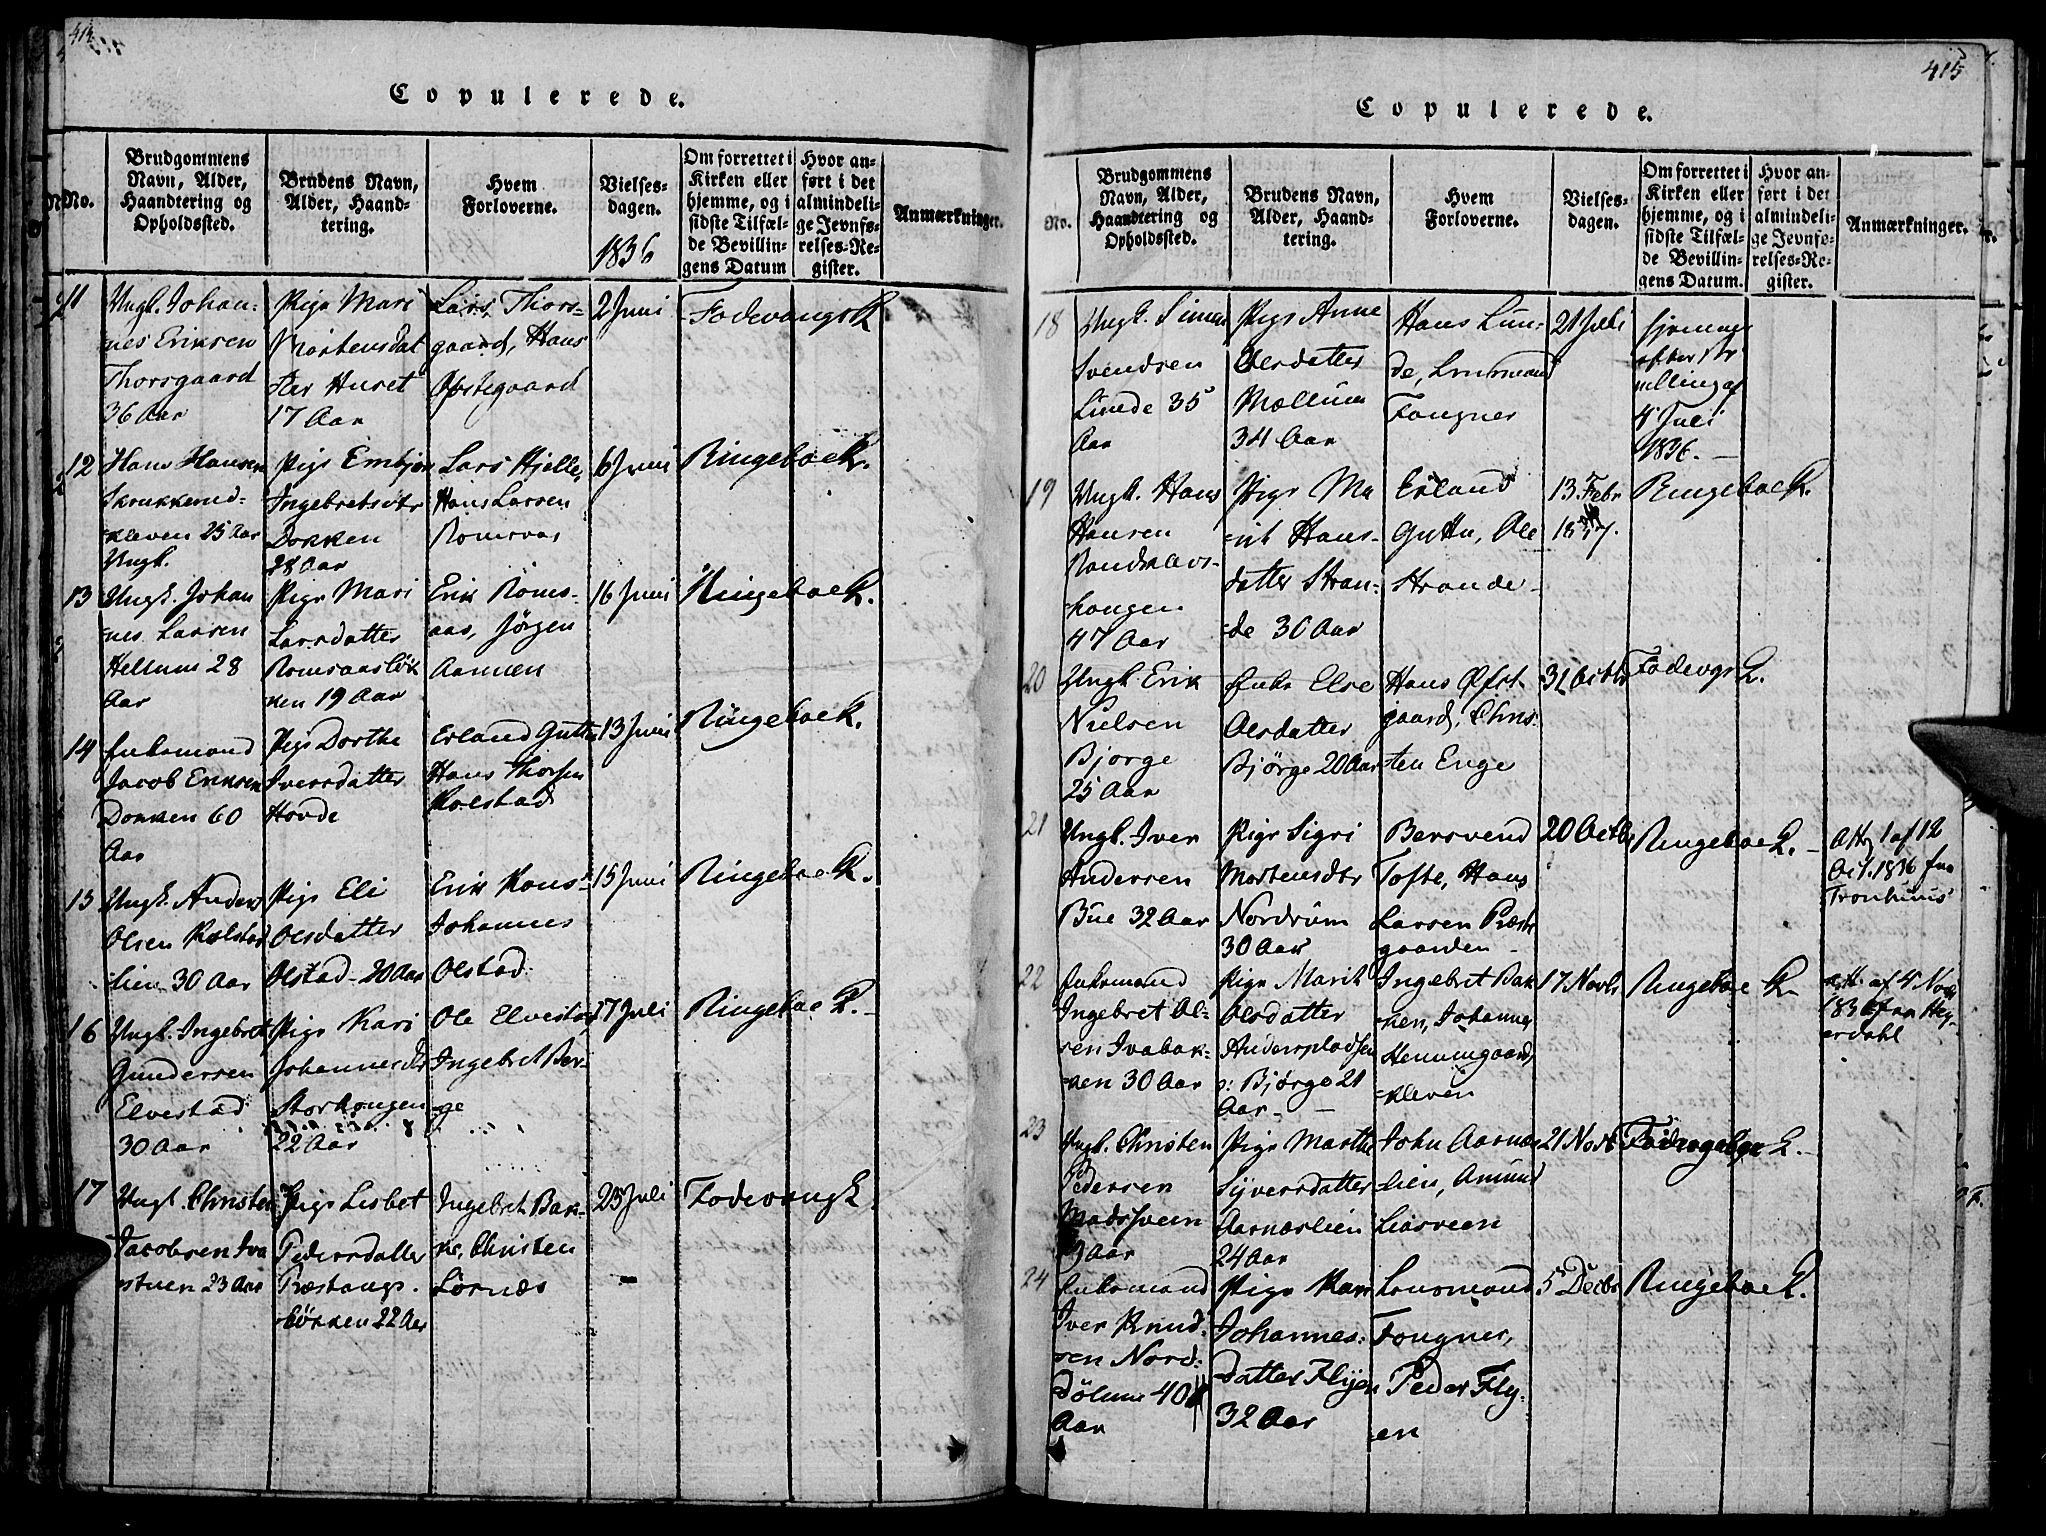 414
Copulerede.
No.
Brudgommens
Navn, Alder,
Haandtering og
Opholdssted.
Brudens Navn,
Alder, Haand-
tering.
Hvem
Forloverne.
Vielses-
dagen.
1836
Om forrettet i
Kirken eller
hjemme, og i
sidste Tilfæl-
de Bevillin-
gens Datum
Hvor an-
ført i det
almindeli-
ge Jevnfø-
relses-Re-
gister.
Anmærkninger.
11
Ungk. Johan-
nes Eriksen
Thorsgaard
36 Aar
Pige Mari
Mortensdat
ter Huset
17 Aar
Lars Thors-
gaard, Hans
Øvstegaard
2 Juni
Fodevangs K
12
Hans Hansen
kleven 25 Aar
Ungk.
Pige Embjør
Ingebretsdtr
Dokken
28 Aar
Lars Hjelle,
Hans Larsen
Romsaas
6 Juni
Ringeboe K.
13
Ungk. Johan
nes Larsen
Hellum 28
Aar
Pige Mari
Larsdatter
Romsaasløk
ken 19 Aar
Erik Roms-
aas, Jørgen
Aannen
16 Juni
Ringeboe K.
14
Enkemand
Jacob Eriksen
Dokken 60
Aar
Pige Dorthe
Iversdatter
Hovde
Erland Gutte
Hans Thorsen
Kolstad
13 Juni
Ringeboe K.
15
Ungk. Anders
Olsen Kolstad
lien 30 Aar
Pige Eli
Olsdatter
Olstad 20 Aar
Erik Kons
Johannes
Olstad
15 Juni
Ringeboe K.
16
Ungk. Ingebret
Gundersen
Elvestad
30 Aar
Pige Kari
Johannesdtr
Storhougen
22 Aar
Ole Elvestad
Ingebret Ber-
ge
17 Juli
Ringeboe K.
17
Ungk. Christen
Jacobsen Iva
stuen 23 Aar
Pige Lisbet
Pedersdatter
Præstangs-
løkken 22 Aar
Ingebret Bak-
ke, Christen
Lørnæs
23 Juli
Fodevang K
415
Copulerede.
No.
Brudgommens
Navn, Alder,
Haandtering og
Opholdssted.
Brudens Navn,
Alder, Haand-
tering.
Hvem
Forloverne.
Vielses-
dagen.
Om forrettet i
Kirken eller
hjemme, og i
sidste Tilfæl-
de Bevillin-
gens Datum.
Hvor an-
ført i det
almindeli-
ge Jevnfø-
relses-Re-
gister.
Anmærkninger.
18
Ungk. Simen
Svendsen
Linde 35
Aar
Pige Anne
Olsdatter
Mællum
34 Aar
Hans Lun-
de, Lensmand
Fougner
21 Juli
hjemme
efter Be
villing af
4 Juli
1836.
19
Ungk. Hans
Hansen
hougen
47 Aar
Pige Ma
rit Hans-
datter Stran-
de 30 Aar
Erland
Gutte, Ole
Strande
13 Febr
Ringeboe K.
20
Ungk. Erik
Nielsen
Bjørge
25 Aar
Enke Else
Olsdatter
Bjørge 20 Aar
Hans Øfst-
gaard, Chris-
ten Enge
31 Octbr
Fodevgs K.
21
Ungk. Iver
Andersen
Bue 32 Aar
Pige Sigri
Mortensdtr
Nordrum
30 Aar
Bersvend
Tofte, Hans
Larsen Præste
gaarden
20 Octbr
Ringeboe K.
Att. 1 af 12
Oct. 1836 fra
22
Enkemand
Ingebret Ol-
sen Ivabak-
ken 30 Aar
Pige Marit
Olsdatter
Anderspladsen
p: Bjørge 21
Aar
Ingebret Bak
ken, Johannes
Hennumgaards
kleven
17 Novbr
Ringeboe K
Att. af 4 Nov
1836 fra Heg-
erdahl
23
Ungk. Christen
Pedersen
Madssveen
Aar
Pige Marthe
Syversdatter
Aarnæslien
24 Aar
John Aarnæs
lien, Amund
Liosveen
21 Novb
K.
24
Enkemand
Iver Knud-
sen Nord-
dølum 40
Aar
Pige Kari
Johannes-
datter Flyen
32 Aar
Lensmand
Fougner,
Peder Fly-
en
5 Decbr
Ringeboe K.